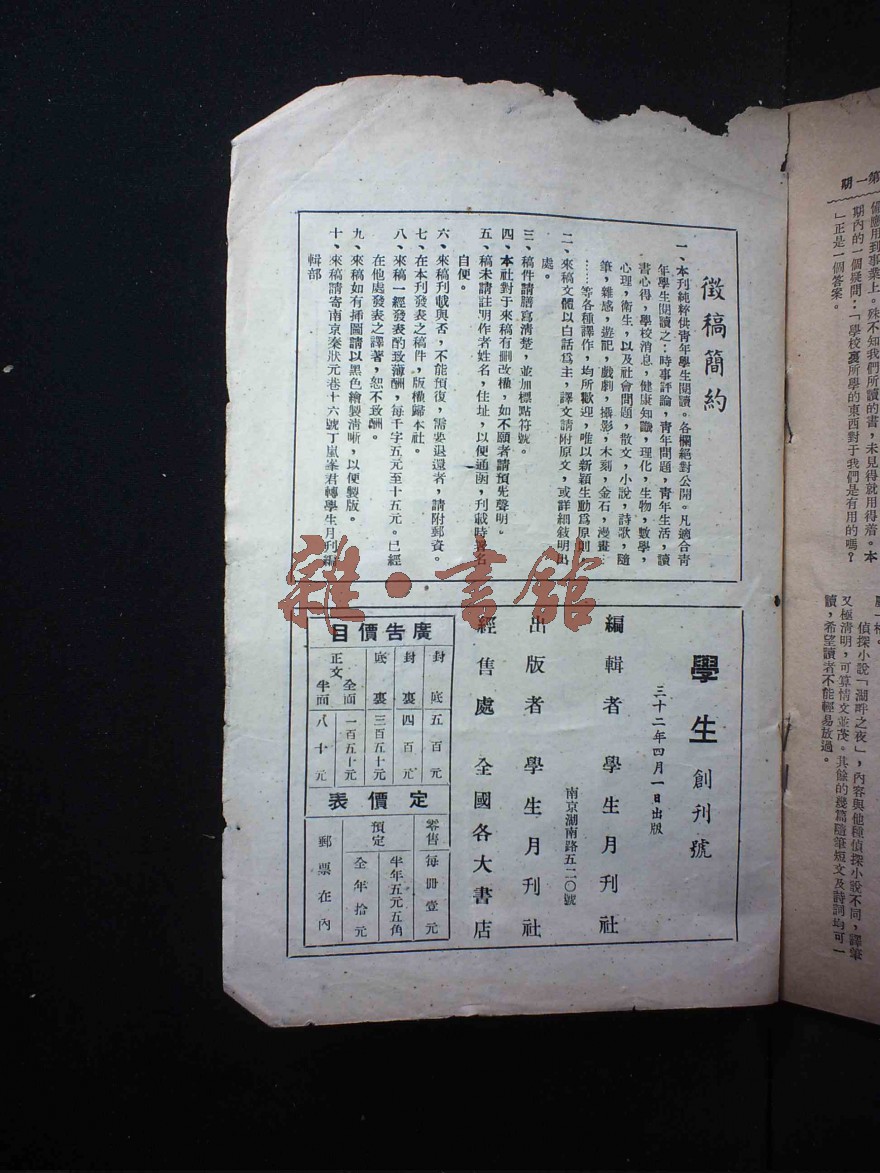 徵稿簡約
一、本刊純粹供青年學生閱讀。各欄絕對公開。凡適合青
年學生閱讀之：時事評論，青年問題，青年生活，讀
書心得，學校消息，健康知識，理化，生物，數學，
心理，衛生，以及社會問題，散文，小說，詩歌，隨
筆，雜感，遊記，戲劇，攝影，木刻，金石，漫畫…
……等各種譯作，均所歡迎，唯以新穎生動為原則。
二、來稿文體以白話為主，譯文請附原文，或詳細敍明出
處。
三、稿件請謄寫清楚，並加標點符號。
四、本社對于來稿有刪改權，如不願者請預先聲明。
五、稿末請註明作者姓名，住址，以便通函，刊載時署名
自便。
六、來稿刊載與否，不能預復，需要退還者，請附郵資。
七、在本刊發表之稿件，版權歸本社。
八、來稿一經發表酌致薄酬，每千字五元至十五元。已經
在他處發表之譯著，恕不致酬。
九、來稿如有揷圖請以黑色繪製清晰，以便製版。
十、來稿請寄南京秦狀元巷十六號丁嵐峯君轉學生月刊編
輯部
學生創刊號
三十二年四月一日出版
編輯者 學生月刊社
南京湖南路五二〇號
出版者 學生月刊社
經售處 全國各大書店
廣告價目
封底 五百元
封裏 四百元
底裏 三百五十元
正文 全面 一百五十元
半面 八十元
定價表
零售 每冊壹元
預定 半年五元五角
全年拾元
郵票在內
雜·書館
第一期
備應用到事業上。殊不知我們所讀的書，未見得就用得着。本
期內的一個疑問：「學校裏所學的東西對于我們是有用的嗎？
」正是一個答案。
偵探小說「湖畔之夜」，內容與他種偵探小說不同，譯筆
又極清明，可算情文並茂。其餘的幾篇隨筆短文及詩詞均可一
讀，希望讀者不能輕易放過。